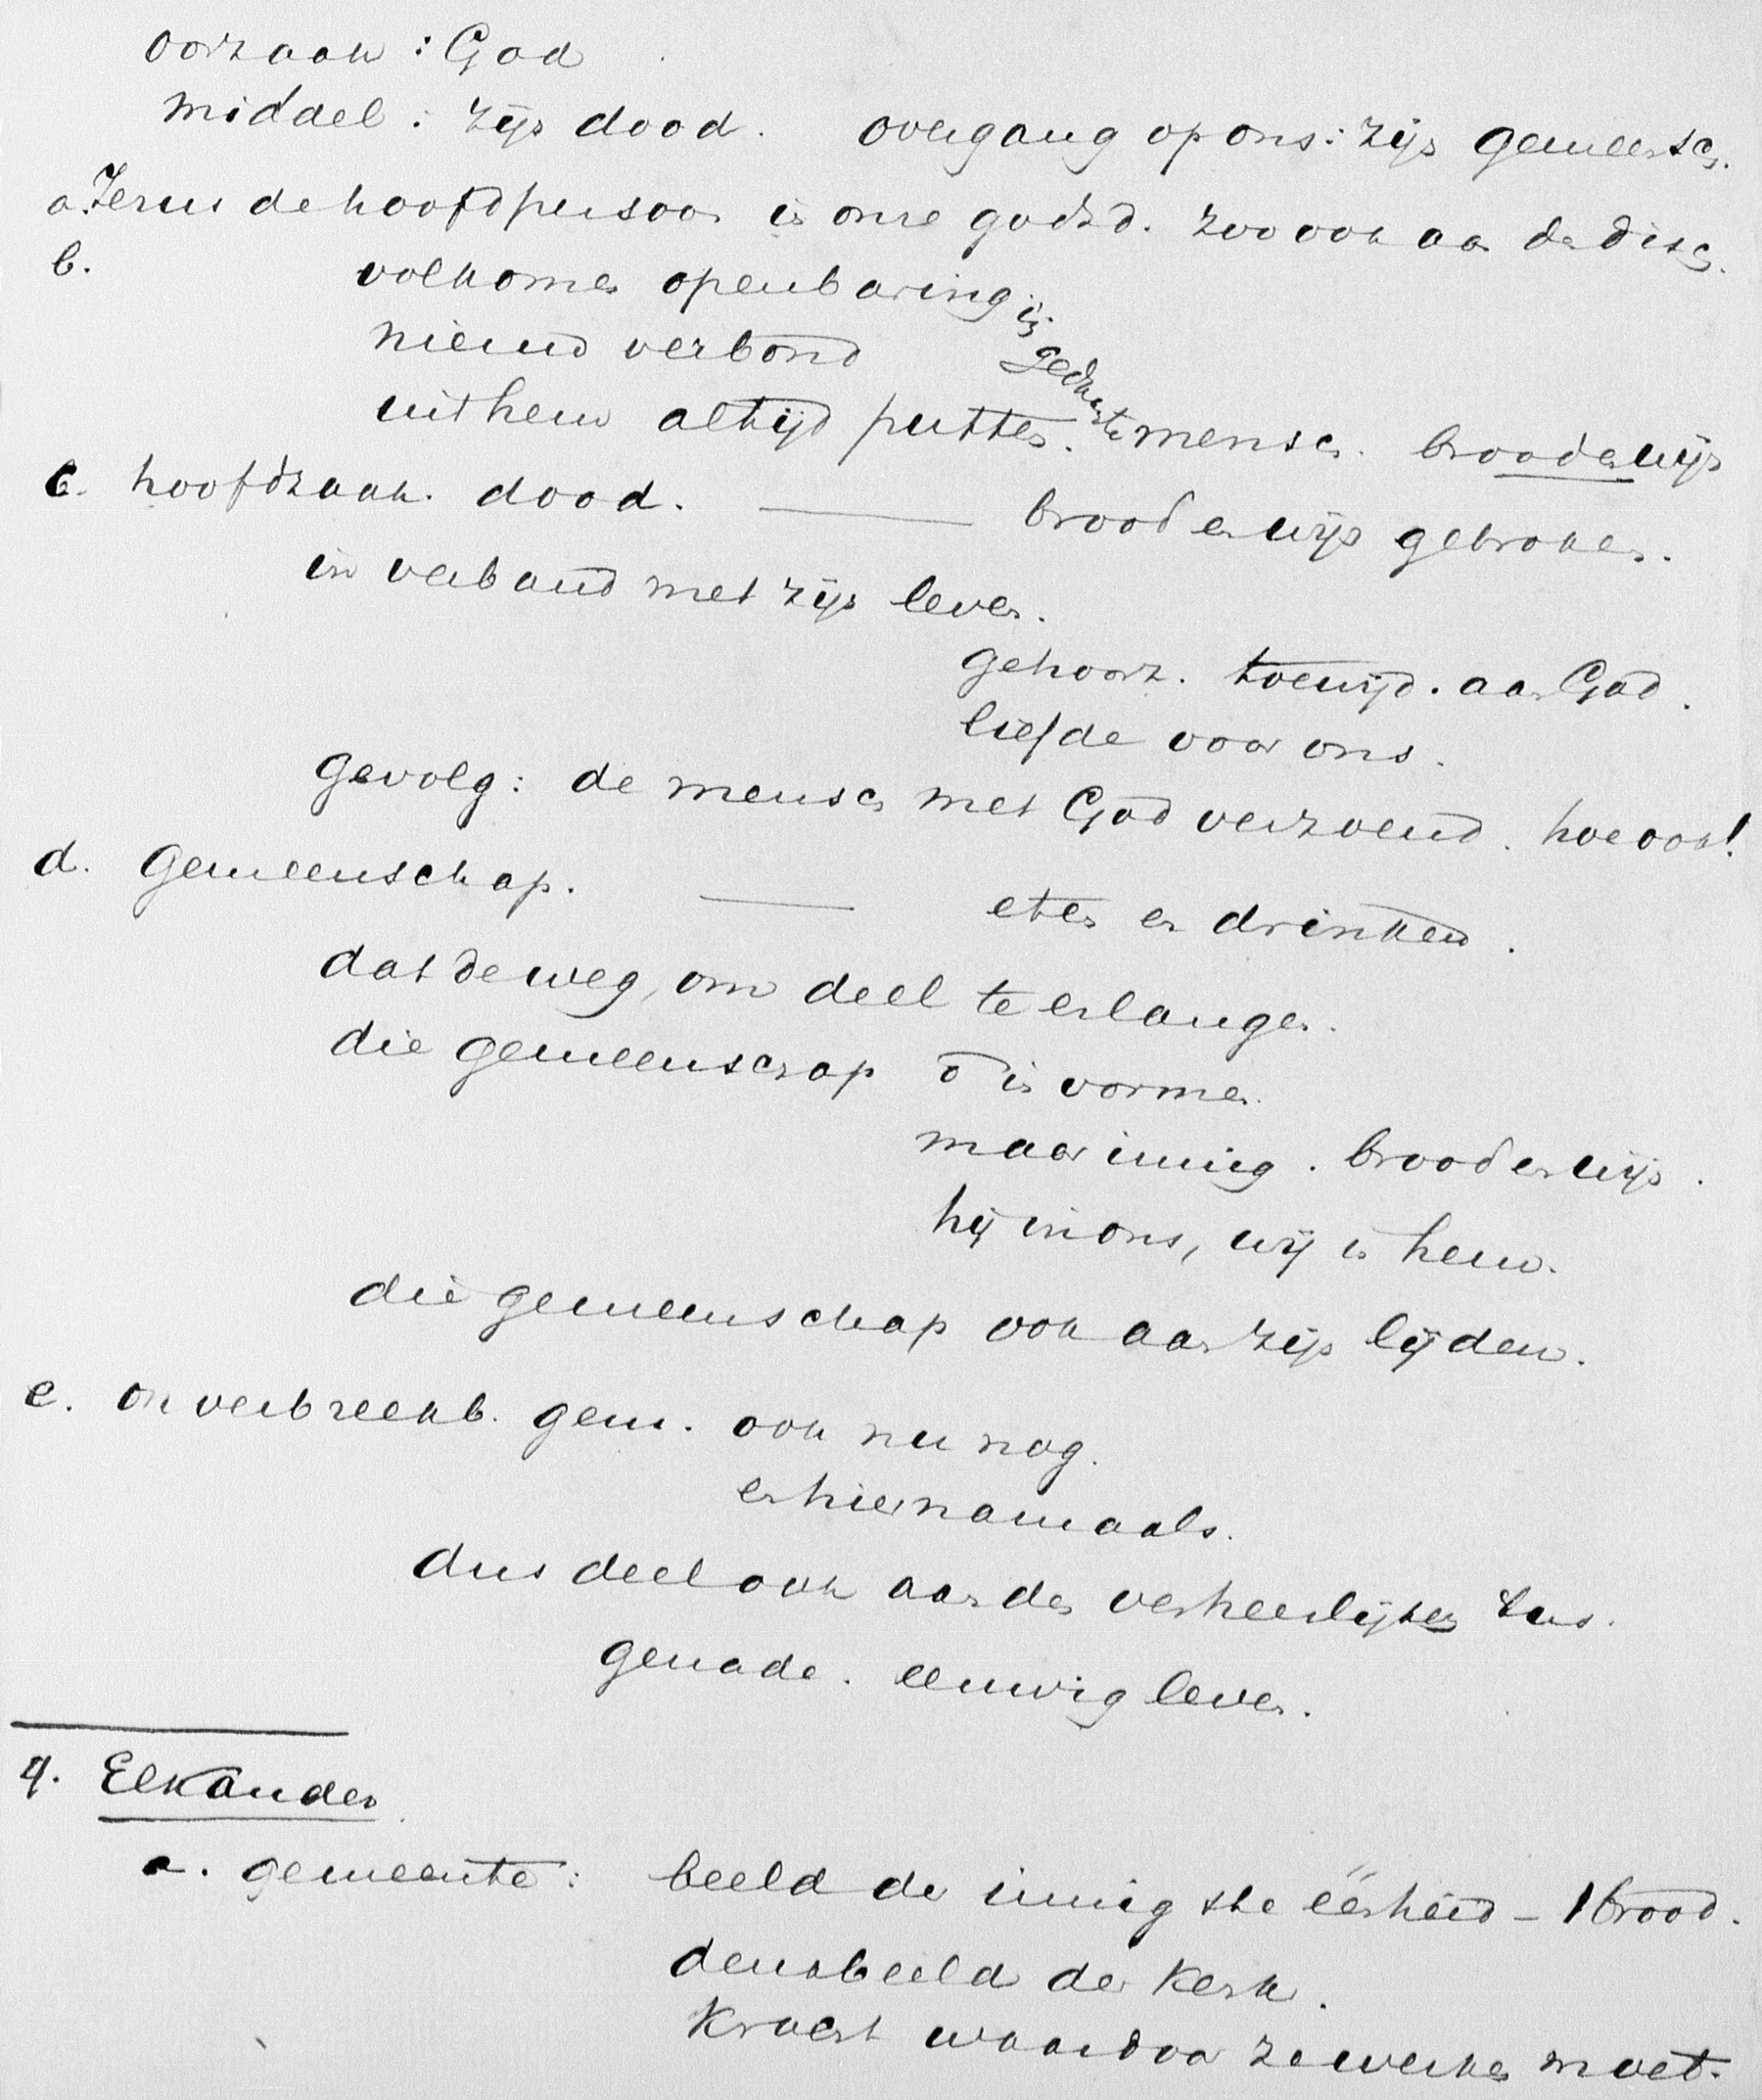 oorzaak : God
middel : zijn dood. overgang op ons: zijn gemeensch.
a. Jezus de hoofdpersoon in onze godsd. zoo ook aan de disch.
b. volkomen openbaring in
nieuw verbond gedaante
uit hem altijd putten. mensch. brood en wijn
c. hoofdzaak. dood. — brood en wijn gebroken.
in verband met zijn leven.
gehoorz. toewijd. aan God.
liefde voor ons.
gevolg: de mensch met God verzoend. hoe ook!
d. gemeenschap. — eten en drinken.
dat de weg, om deel te erlangen.
die gemeenschap 0 in vormen.
maar innig. brood en wijn.
hij in ons, wij in hem.
die gemeenschap ook aan zijn lijden.
e. onverbreekb. gem. ook nu nog.
en hiernamaals.
dus deel ook aan den verheerlijkten
genade. eeuwig leven.
4. Elkander
a. gemeente: beeld der innigste eenheid – 1 brood.
denkbeeld der Kerk.
Kracht waardoor ze werken moet.